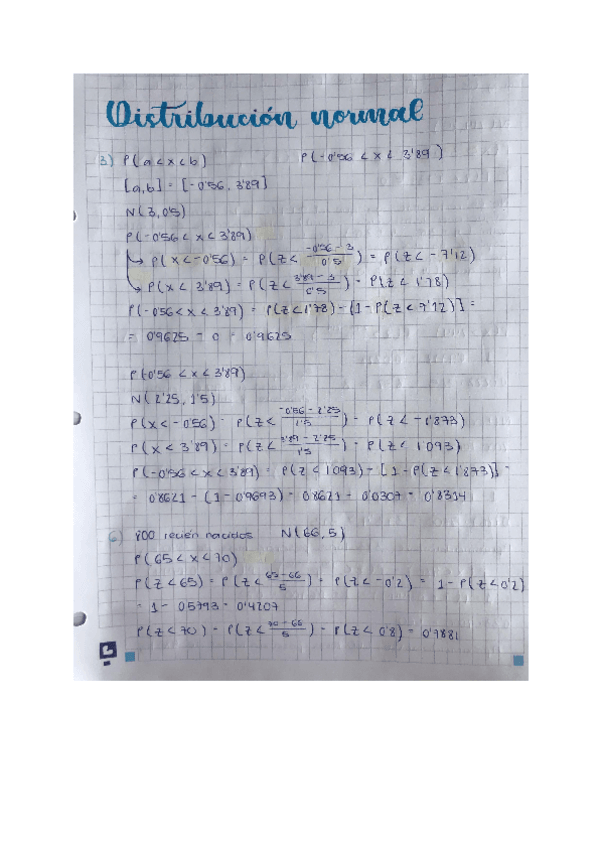 Distribución normal
3) P(a<x<b) P(-0'56 < x < 3'89)
[a,b] = [-0'56, 3'89]
N(3, 0'5)
P(-0'56 < x < 3'89)
↳ P(x<-0'56) = P(Z< (-0'56 - 3)/0'5) = P(Z< -7'12)
↳ P(x< 3'89) = P(Z< (3'89 - 3)/0'5) = P(Z< 1'78)
P(-0'56< x < 3'89) = P(Z<1'78) - [1-P(Z<7'12)] =
= 0'9625 - 0 = 0'9625
P(-0'56 < x < 3'89)
N(2'25, 1'5)
P(x<-0'56) = P(Z< (-0'56 - 2'25)/1'5) = P(Z< -1'873)
P(x< 3'89) = P(Z< (3'89 - 2'25)/1'5) = P(Z< 1'093)
P(-0'56 < x < 3'89) = P(Z < 1'093) - [1-P(Z<1'873)] =
= 0'8621 - (1-0'9693) = 0'8621 - 0'0307 = 0'8314
6) 800 recién nacidos N(66, 5)
P(65 < x < 70)
P(Z<65) = P(Z< (65-66)/5) = P(Z< -0'2) = 1-P(Z<0'2)
= 1 - 0'5793 = 0'4207
P(Z<70) = P(Z< (70-66)/5) = P(Z< 0'8) = 0'7881